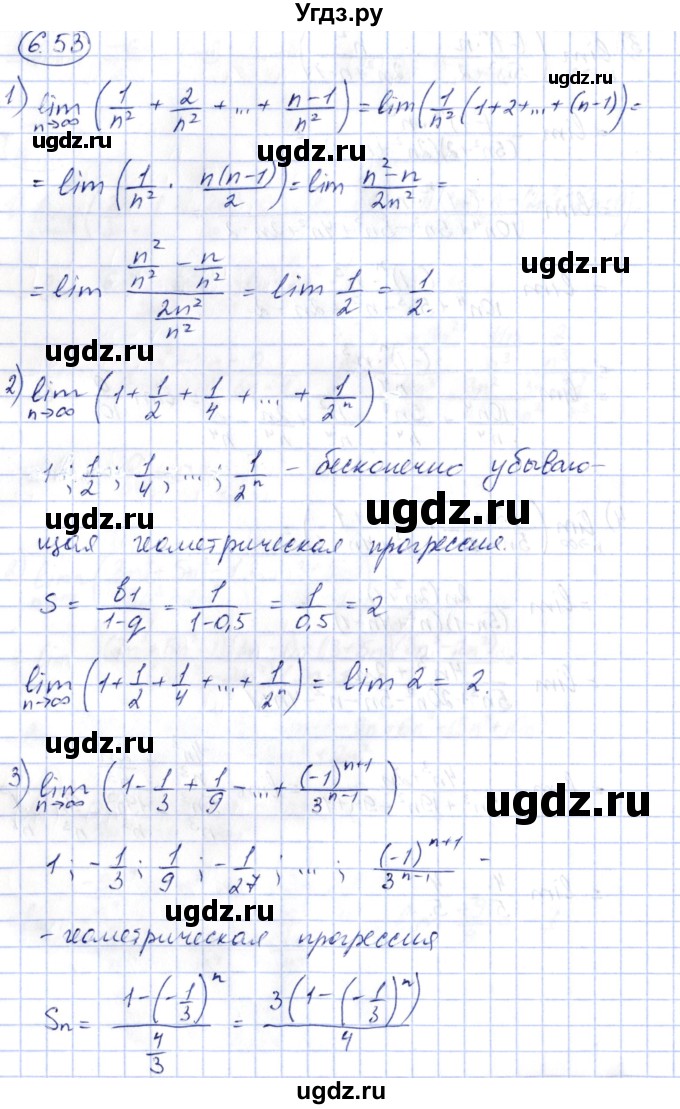 Угдз.ру
6.53
1) lim n→∞ (1/n² + 2/n² + ... + (n-1)/n²) = lim (1/n² (1+2+...+(n-1)) =
ugdz.ru
ugdz.ru
= lim (1/n² · n(n-1)/2) = lim (n²-n)/2n² =
ugdz.ru
= lim (n²/n² - n/n²)/(2n²/n²) = lim 1/2 = 1/2.
ugdz.ru
2) lim n→∞ (1 + 1/2 + 1/4 + ... + 1/2ⁿ)
1; 1/2; 1/4; ...; 1/2ⁿ - бесконечно убываю-
ugdz.ru
ugdz.ru
щая геометрическая прогрессия.
S = b1/(1-q) = 1/(1-0,5) = 1/0,5 = 2
ugdz.ru
lim n→∞ (1 + 1/2 + 1/4 + ... + 1/2ⁿ) = lim 2 = 2.
ugdz.ru
3) lim n→∞ (1 - 1/3 + 1/9 - ... + (-1)ⁿ⁺¹/3ⁿ⁻¹)
ugdz.ru
1; -1/3; 1/9; -1/27; ...; (-1)ⁿ⁺¹/3ⁿ⁻¹ -
ugdz.ru
- геометрическая прогрессия
Sn = (1-(-1/3)ⁿ)/(4/3) = 3(1-(-1/3)ⁿ)/4
ugdz.ru
ugdz.ru